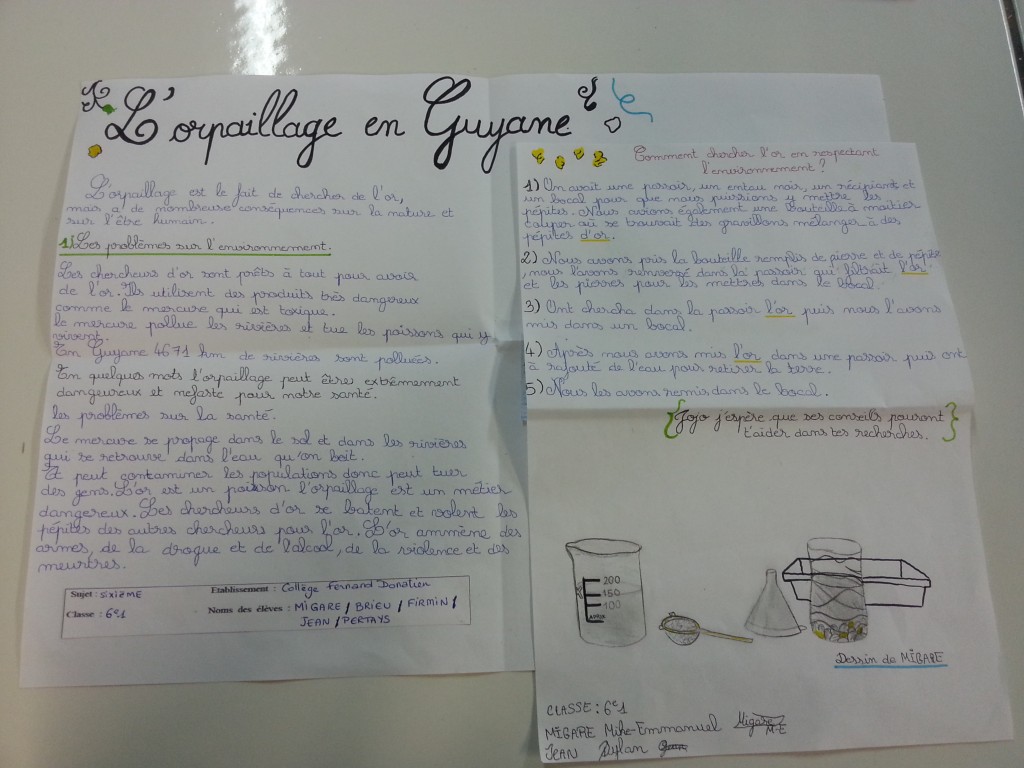 L'orpaillage en Guyane
L'orpaillage est le fait de chercher de l'or,
mais a de nombreuse conséquences sur la nature et
sur l'être humain.
1) Les problèmes sur l'environnement.
Les chercheurs d'or sont prêts à tout pour avoir
de l'or. Ils utilisent des produits très dangereux
comme le mercure qui est toxique.
le mercure pollue les rivières et tue les poissons qui y
vivent.
En Guyane 4671 km de rivières sont pollués.
En quelques mots l'orpaillage peut êtres extrêmement
dangeureux et néfaste pour notre santé.
les problèmes sur la santé.
Le mercure se propage dans le sol et dans les rivières
qui se retrouve dans l'eau qu'on boit.
Et peut contaminer les populations donc peut tuer
des gens. L'or est un poisson l'orpaillage est un métier
dangereux. Les chercheurs d'or se batent et volent les
pépites des autres chercheurs pour l'or. L'or ammène des
armes, de la drogue et de l'alcool, de la violence et des
meurtres.
Sujet : sixième Etablissement : Collège Fernand Donatien
Classe : 6e1 Noms des élèves : MIGARE / BRIEU / FIRMIN /
JEAN / PERTAYS
Comment chercher l'or en respectant
l'environnement ?
1) On avait une passoir, un entau noir, un récipient et
un bocal pour que nous puissions y mettre les
pépites. Nous avions également une bouteille à moitier
couper où se trouvait des gravillons mélanger à des
pépites d'or.
2) Nous avons pris la bouteille remplis de pierre et de pépite
, nous l'avons renversé dans la passoir qui filtrait l'or
et les pierres pour les mettres dans le bocal.
3) Ont chercha dans la passoir l'or puis nous l'avons
mis dans un bocal.
4) Après nous avons mis l'or dans une passoir puis ont
à rajouté de l'eau pour retirer la terre.
5) Nous les avons remis dans le bocal.
{Jojo j'espère que ses conseils pouront
t'aider dans tes recherches.}
200
150
100
APPROX
Dessin de MIGARE
CLASSE : 6e1
MIGARE Mike-Emmanuel Migare M-E
JEAN Dylan